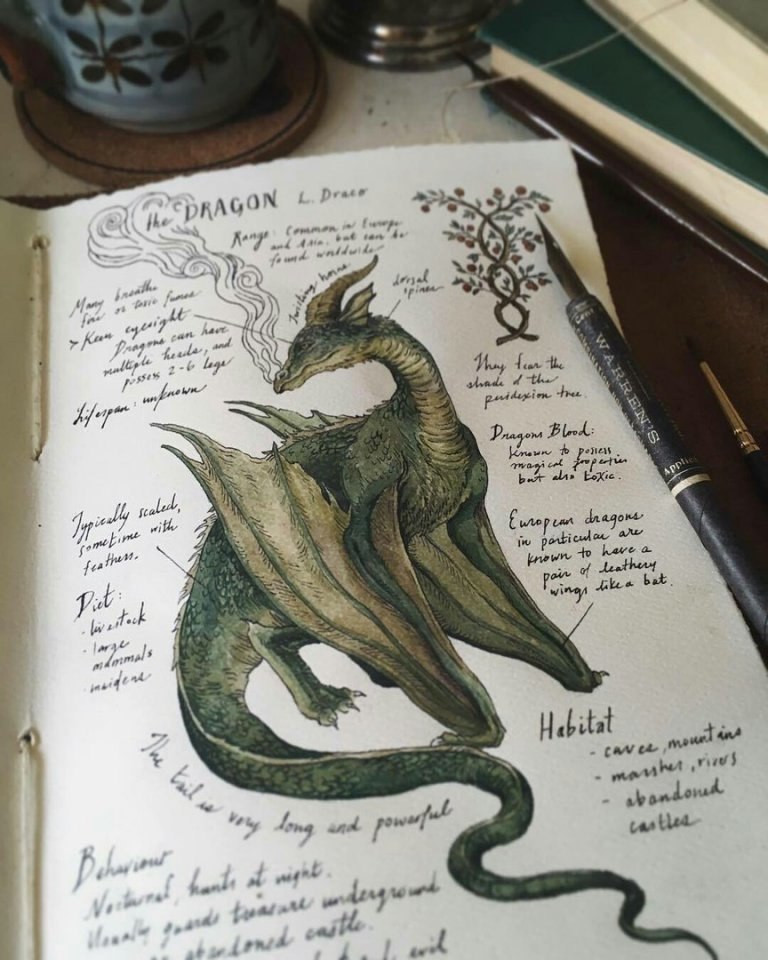 the DRAGON L. Draco
Range: Common in Europe
and Asia, but can be
found worldwide
Many breathe
fire or toxic fumes
> Keen eyesight
Dragons can have
multiple heads, and
possess 2-6 legs
Lifespan: unknown
horns
dorsal
spines
They fear the
shade of the
peridexion tree.
Dragons Blood:
known to possess
magical properties
but also toxic.
European dragons
in particular are
known to have a
pair of leathery
wings like a bat.
Typically scaled,
sometime with
feathers.
Diet:
- livestock
- large
mammals
- maidens
Habitat
- caves, mountains
- marshes, rivers
- abandoned
castles
The tail is very long and powerful
Behaviour
Nocturnal, hunts at night.
Usually guards treasure underground
abandoned castle.
evil
WARREN'S